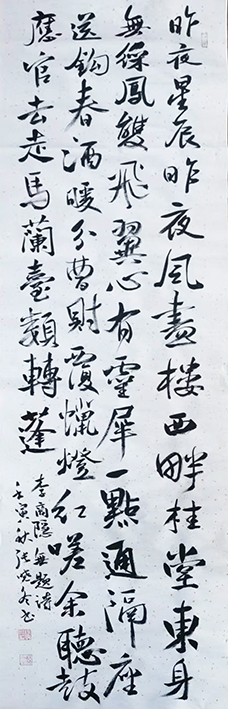 昨夜星辰昨夜风畫楼西畔桂堂東身
無綵鳳雙飛翼心有靈犀一點通隔座
送鈎春酒暖分曹射覆蠟燈红嗟余聽鼓
應官去走馬蘭臺類轉蓬
李商隱無題詩
壬寅秋张